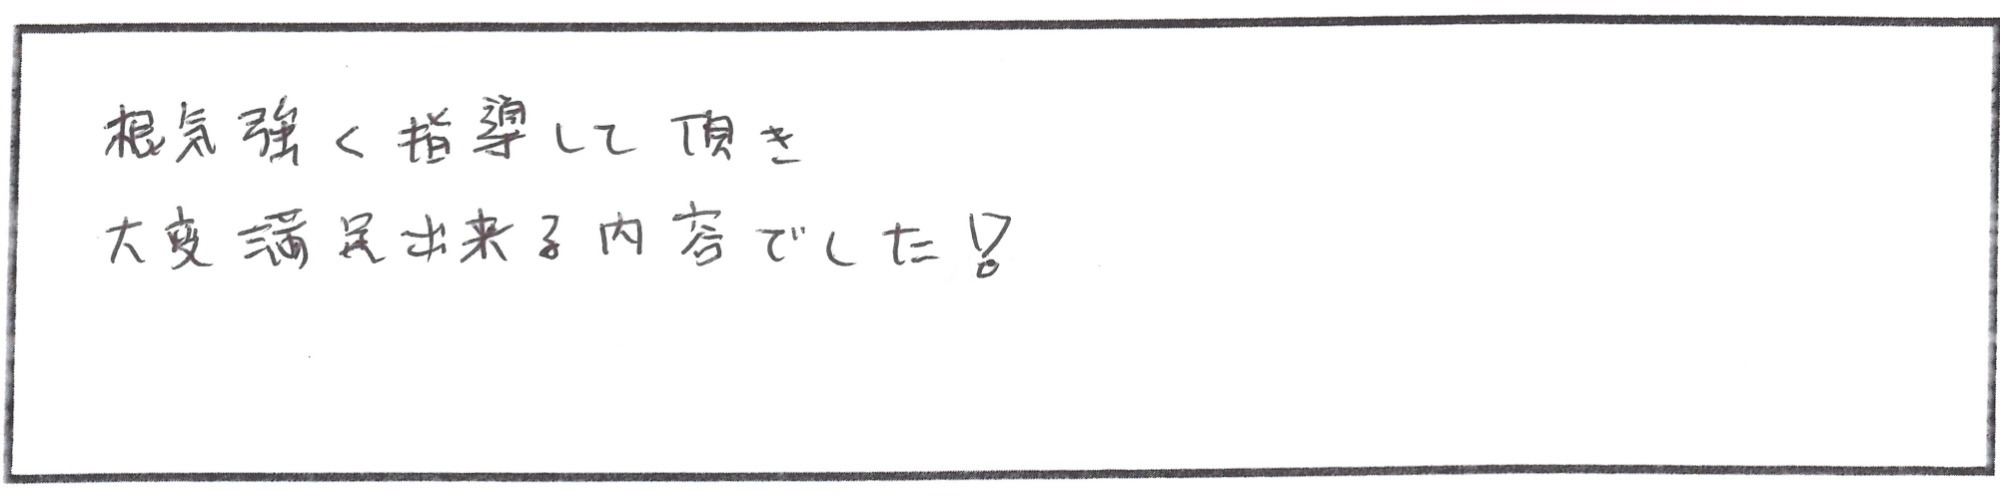 根気強く指導して頂き
大変満足出来る内容でした!